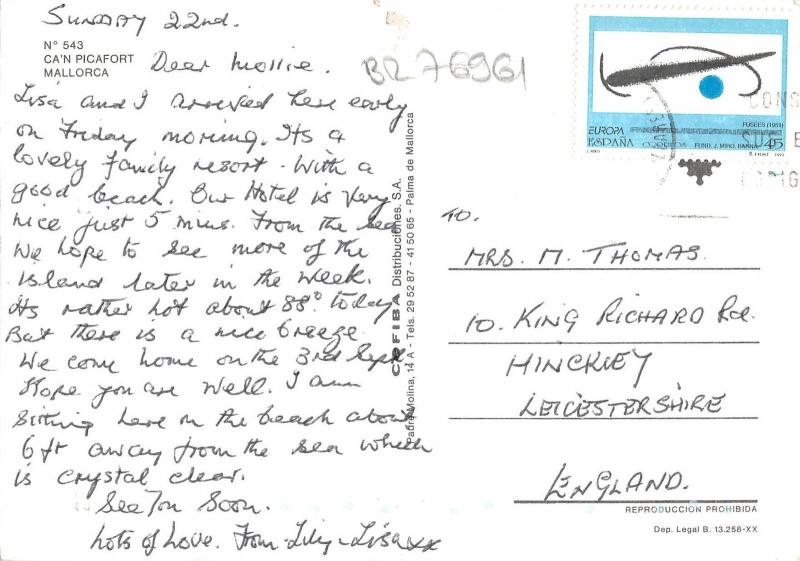 Sunday 22nd.
Nº 543
CA'N PICAFORT
MALLORCA
Dear Mollie.
BR 76961
Lisa and I arrived here early
on Friday morning. Its a
lovely family resort. With a
good beach. Our Hotel is very
nice just 5 mins. From the sea
We hope to see more of the
island later in the week.
Its rather hot about 88° today
But there is a nice breeze.
We come home on the 3rd Sept
Hope you are well. I am
Sitting here on the beach about
6 ft away from the sea which
is crystal clear.
See You Soon.
Lots of Love. From Lily - Lisa xx
CRFIBA Distribuciones, S.A.
Padre Molina, 14 A - Tels. 29 52 87 - 41 50 65 - Palma de Mallorca
FUSEES (1951)
EUROPA
ESPAÑA CORREOS FUND. J. MIRO, BARNA 45
TO.
MRS. M. THOMAS.
10. KING RICHARD Rd.
HINCKLEY
LEICESTERSHIRE
ENGLAND.
REPRODUCCION PROHIBIDA
Dep. Legal B. 13.258-XX